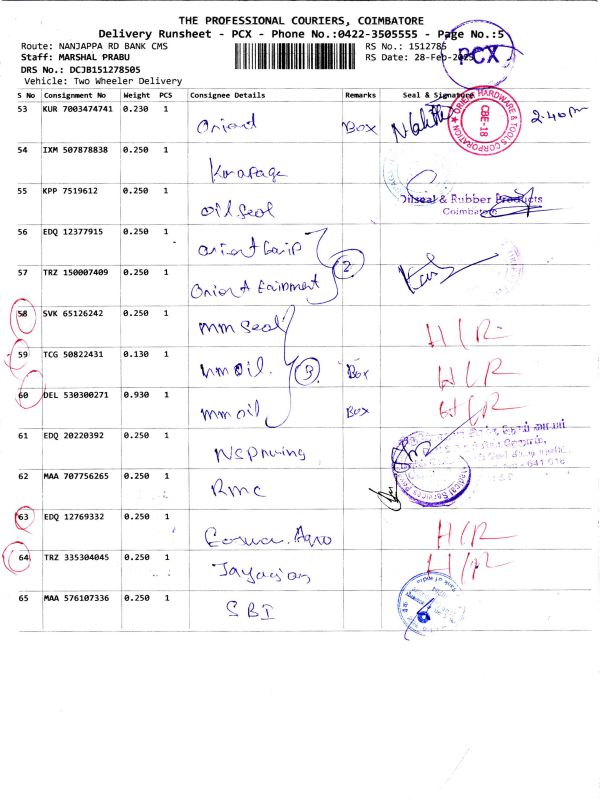 THE PROFESSIONAL COURIERS, COIMBATORE
Delivery Runsheet - PCX - Phone No.:0422-3505555 - Page No.:5
Route: NANJAPPA RD BANK CMS
RS No.: 1512785
PCX
Staff: MARSHAL PRABU
RS Date: 28-Feb-2025
DRS No.: DCJB151278505
Vehicle: Two Wheeler Delivery
S No Consignment No Weight PCS Consignee Details Remarks Seal & Signature
53 KUR 7003474741 0.230 1 Orient Box 2.40 pm
ORIENT HARDWARE & TOOLS CORPORATION
CBE-18
54 IXM 507878838 0.250 1
55 KPP 7519612 0.250 1 oil seal
Oilseal & Rubber Products
Coimbatore
56 EDQ 12377915 0.250 1 orient
57 TRZ 150007409 0.250 1 Orient 2
58 SVK 65126242 0.250 1 mm seal H/R
59 TCG 50822431 0.130 1 mm oil. 3 Box H/R
60 DEL 530300271 0.930 1 mm oil Box H/R
61 EDQ 20220392 0.250 1
62 MAA 707756265 0.250 1 RMC
641 018
Medical Services
63 EDQ 12769332 0.250 1 Agro H/R
64 TRZ 335304045 0.250 1 H/R
65 MAA 576107336 0.250 1 SBI